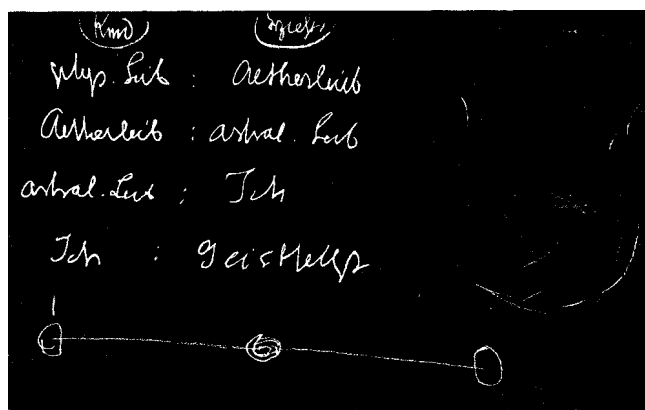 Kind
phys. Leib : Aetherleib
Aetherleib : astral. Leib
astral. Leib : Ich
Ich : Geistselbst